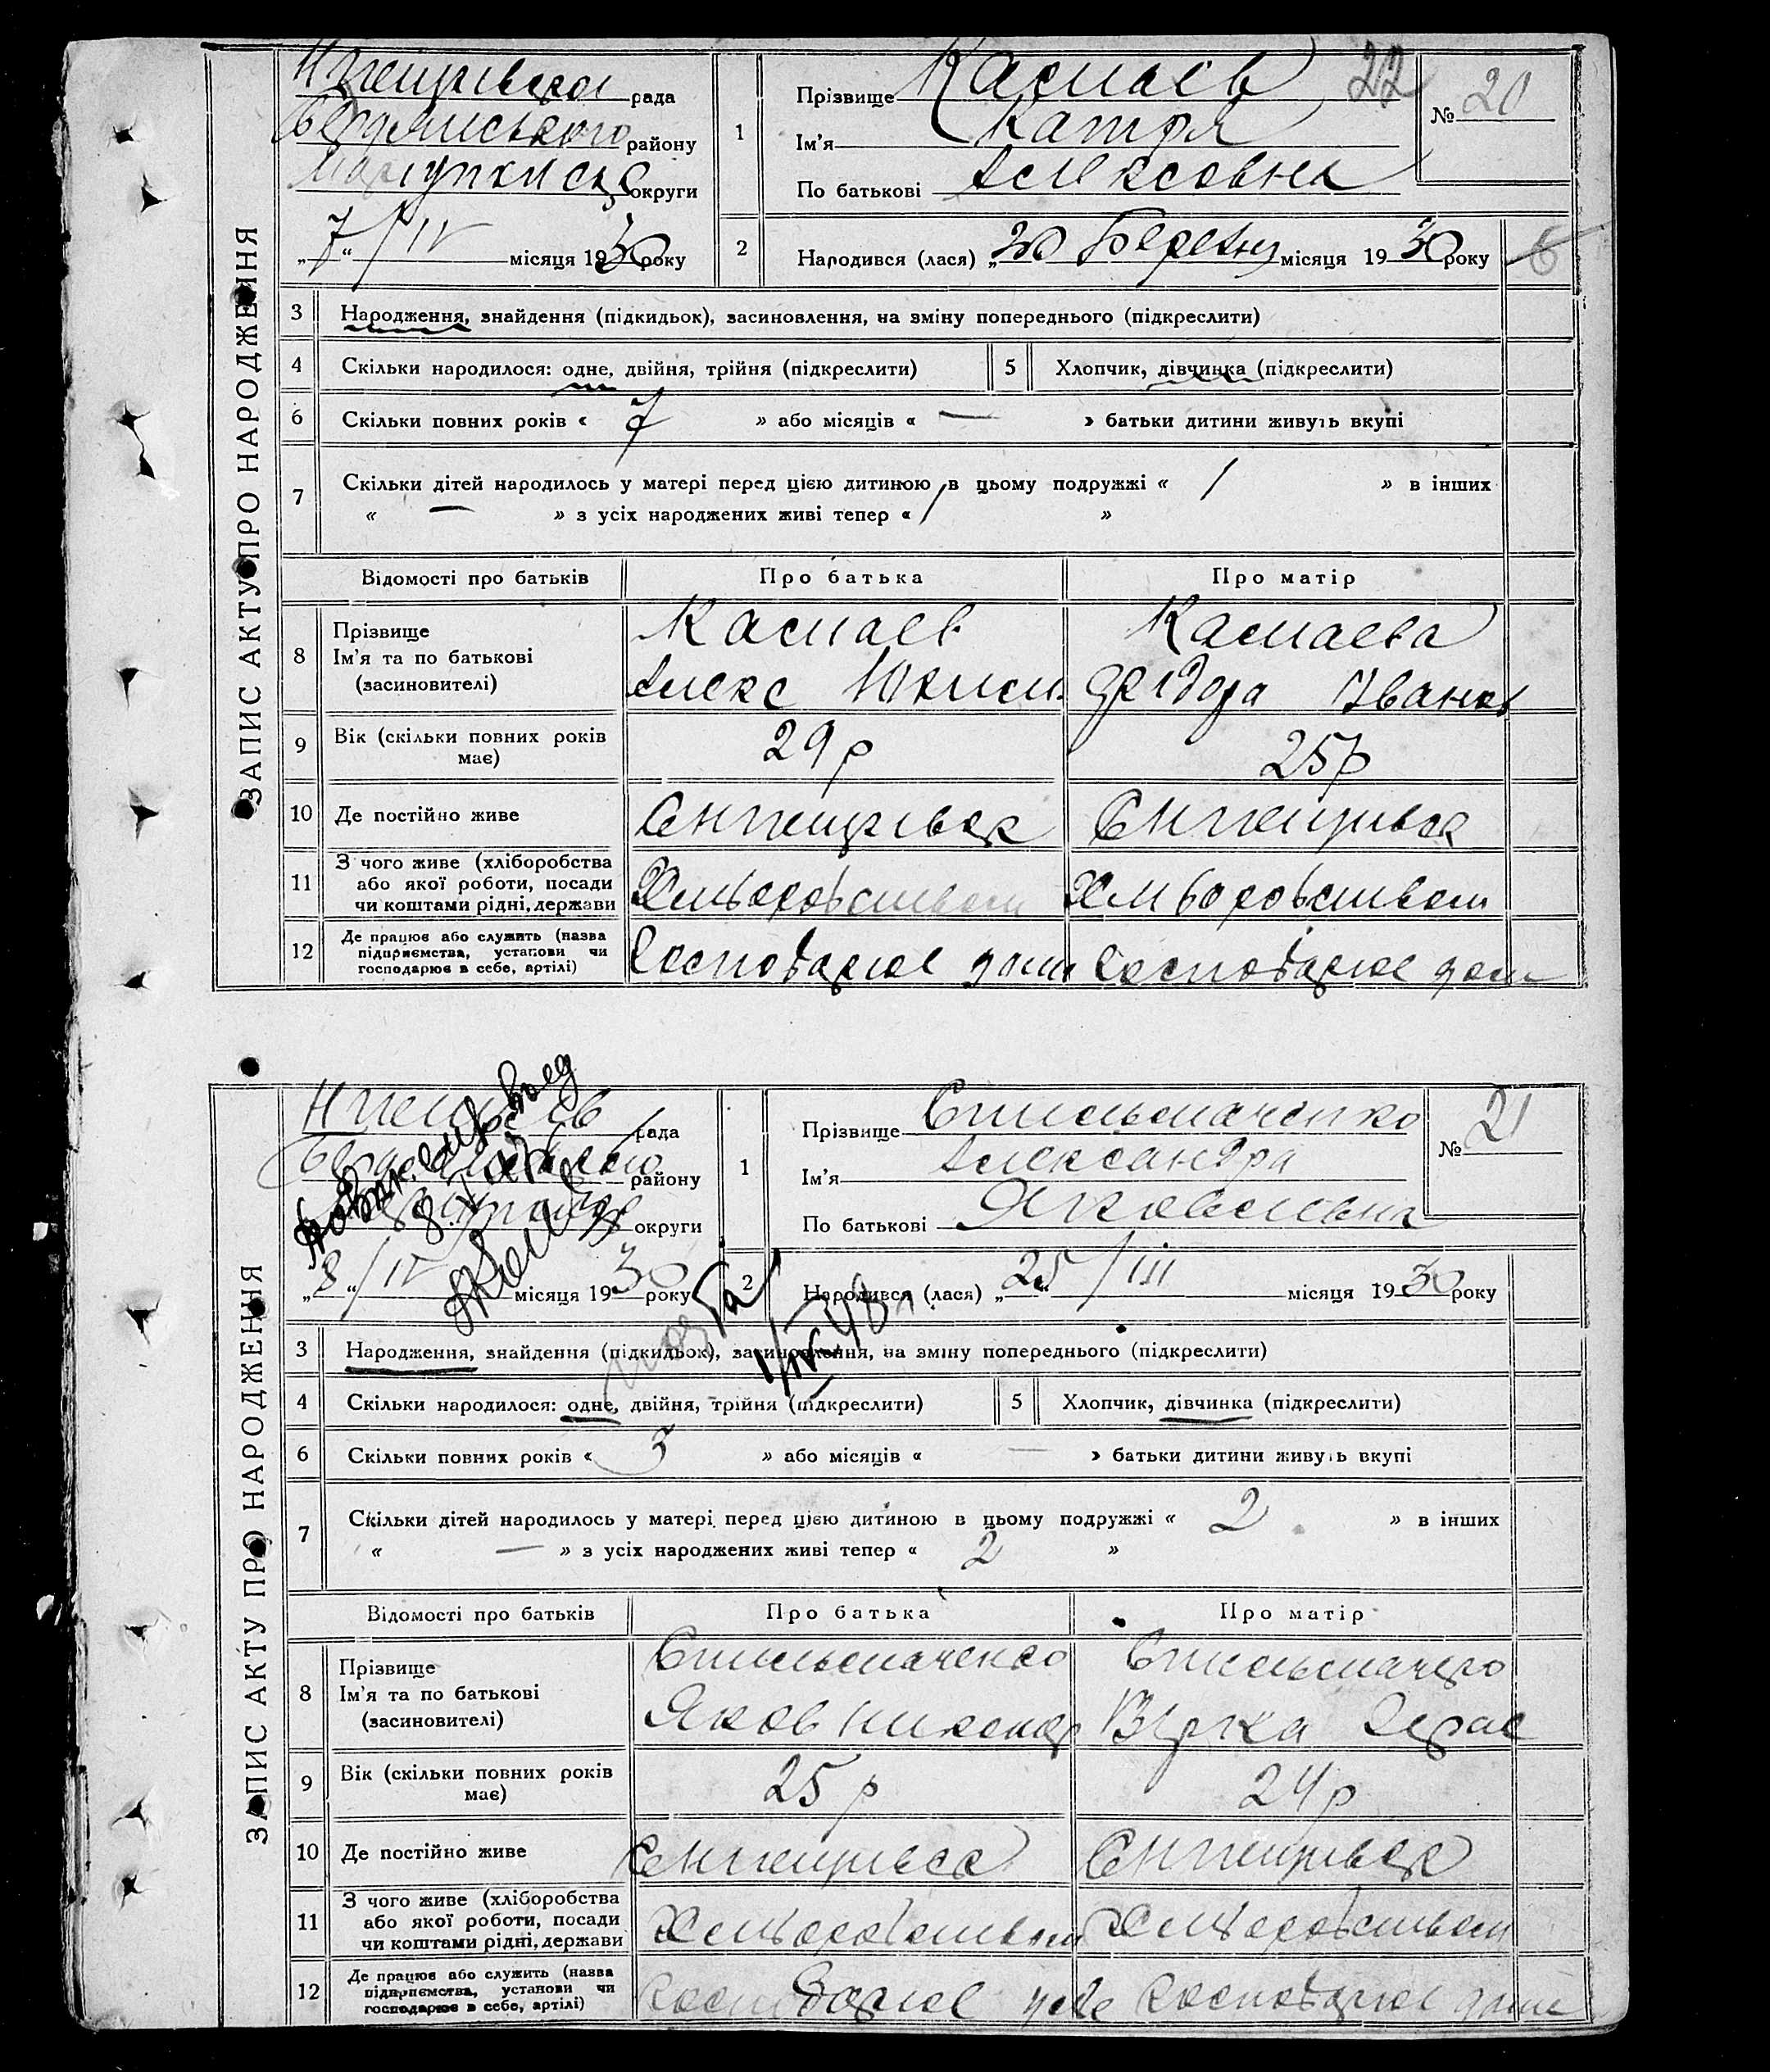 ЗАПИС АКТУ ПРО НАРОДЖЕННЯ
рада
Бердянського району
округи
„7“ /IV місяця 1930 року
1
Прізвище 22
Ім'я Катря
По батькові Алексовна
№ 20
2
Народився (лася) „30 Березня місяця 1930 року
6
3 Народження, знайдення (підкидьок), засиновлення, на зміну попереднього (підкреслити)
4 Скільки народилося: одне, двійня, трійня (підкреслити) 5 Хлопчик, дівчинка (підкреслити)
6 Скільки повних років « 7 » або місяців « — » батьки дитини живуть вкупі
7 Скільки дітей народилось у матері перед цією дитиною в цьому подружжі « 1 » в інших
« — » з усіх народжених живі тепер « 1 »
Відомості про батьків Про батька Про матір
8 Прізвище
Ім'я та по батькові
(засиновителі)
Алекс
Іванов
9 Вік (скільки повних років має) 29 р 25 р
10 Де постійно живе
11 З чого живе (хліборобства або якої роботи, посади чи коштами рідні, держави Хліборобством Хліборобством
12 Де працює або служить (назва підприємства, установи чи господарює в себе, артілі) Господарює дома Господарює дома
ЗАПИС АКТУ ПРО НАРОДЖЕННЯ
рада
району
округи
„8“ /IV місяця 1930 року
1
Прізвище Стельмаченко
Ім'я Александра
По батькові Яковлевна
№ 21
2
Народився (лася) „25“ /III місяця 1930 року
3 Народження, знайдення (підкидьок), засиновлення, на зміну попереднього (підкреслити)
4 Скільки народилося: одне, двійня, трійня (підкреслити) 5 Хлопчик, дівчинка (підкреслити)
6 Скільки повних років « 5 » або місяців « — » батьки дитини живуть вкупі
7 Скільки дітей народилось у матері перед цією дитиною в цьому подружжі « 2 » в інших
« — » з усіх народжених живі тепер « 2 »
Відомості про батьків Про батька Про матір
8 Прізвище
Ім'я та по батькові
(засиновителі)
Стельмаченко
Яков
9 Вік (скільки повних років має) 25 р 24 р
10 Де постійно живе
11 З чого живе (хліборобства або якої роботи, посади чи коштами рідні, держави Хліборобством Хліборобством
12 Де працює або служить (назва підприємства, установи чи господарює в себе, артілі) Господарює Господарює дома